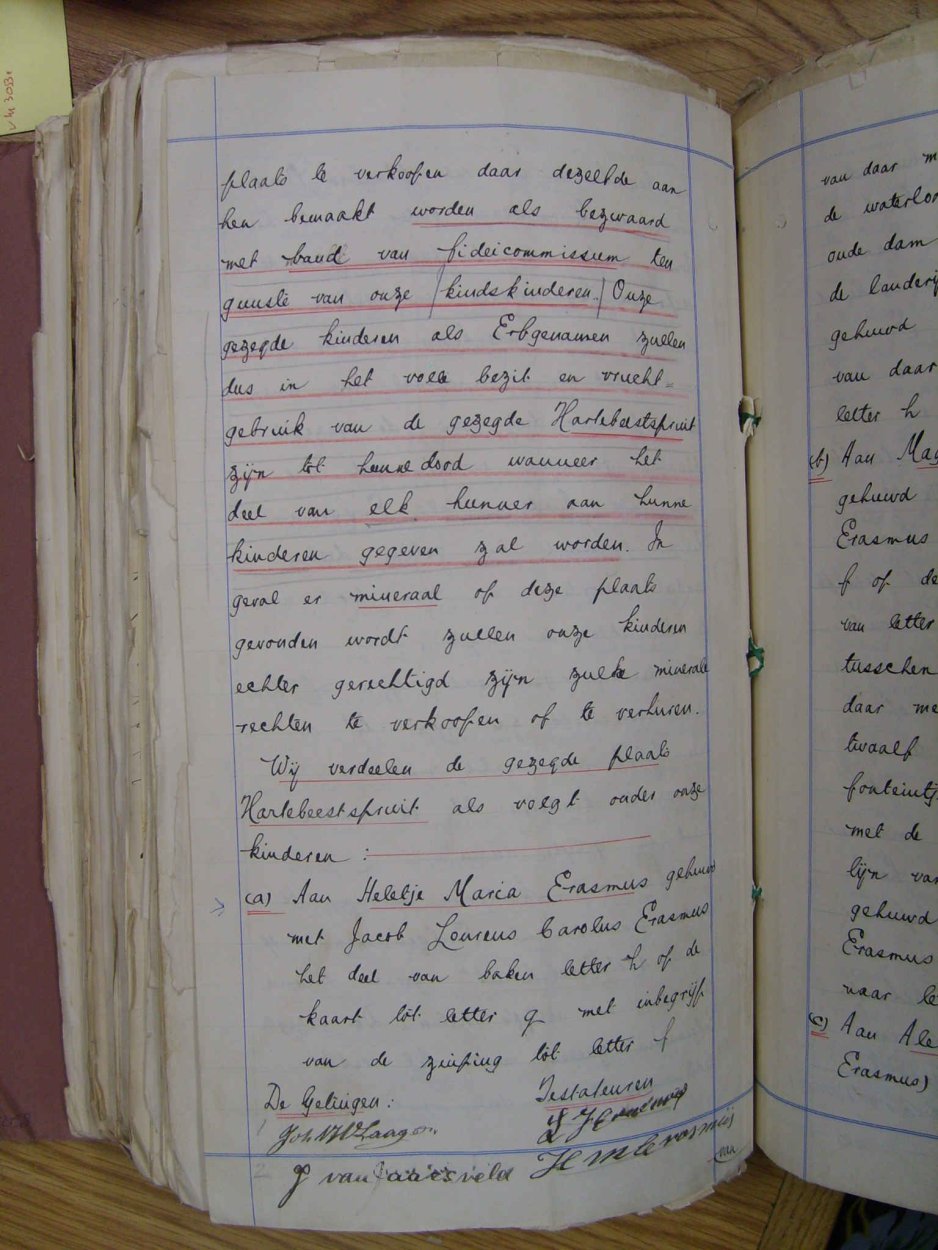 plaats te verkoopen daar dezelfde aan
hen bemaakt worden als bezwaard
met band van fideicommissum ten
gunste van onze kindskinderen. Onze
gezegde kinderen als Erfgenamen zullen
dus in het volle bezit en vrucht=
gebruik van de gezegde Hartebeestspruit
zijn tot hunne dood wanneer het
deel van elk hunner aan hunne
kinderen gegeven zal worden. In
geval er mineraal op deze plaats
gevonden wordt zullen onze kinderen
echter gerechtigd zijn zulke minerale
rechten te verkoopen of te verhuren.
Wij verdeelen de gezegde plaats
Hartebeestspruit als volgt onder onze
kinderen :
(a) Aan Heletje Maria Erasmus gehuwd
met Jacob Lourens Carolus Erasmus
het deel van baken letter h op de
kaart tot letter g met inbegrip
van de zuiping tot letter f
De Getuigen: Testateuren
J van Jaarsveld
van
van daar
de waterloo
oude dam
de landerij
gehuwd
van daar
letter h
(b) Aan Mag
gehuwd
Erasmus
f op de
van letter
tusschen
daar me
twaalf
fonteintj
met de
lijn van
gehuwd
Erasmus
naar le
(c) Aan Ale
Erasmus)